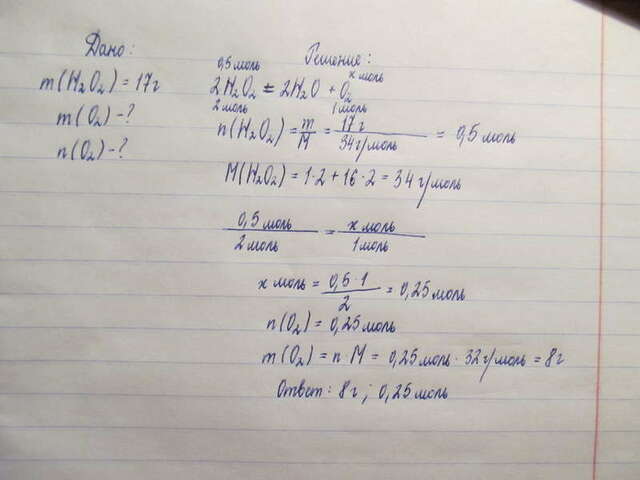 Дано:
m(H₂O₂) = 17г
m(O₂) - ?
n(O₂) - ?
Решение:
0,5 моль x моль
2H₂O₂ = 2H₂O + O₂
2 моль 1 моль
n(H₂O₂) = m/M = 17г/34г/моль = 0,5 моль
M(H₂O₂) = 1·2 + 16·2 = 34 г/моль
0,5 моль/2 моль = x моль/1 моль
x моль = 0,5·1/2 = 0,25 моль
n(O₂) = 0,25 моль
m(O₂) = n·M = 0,25 моль · 32г/моль = 8г
Ответ: 8г; 0,25 моль